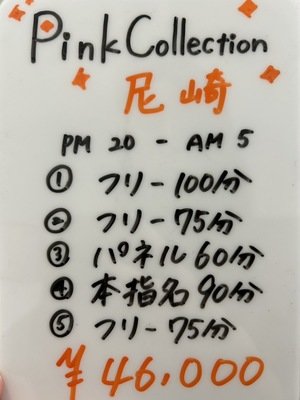 Pink Collection
尼崎
PM 20 - AM 5
① フリー 100分
② フリー 75分
③ パネル 60分
④ 本指名 90分
⑤ フリー 75分
¥46,000